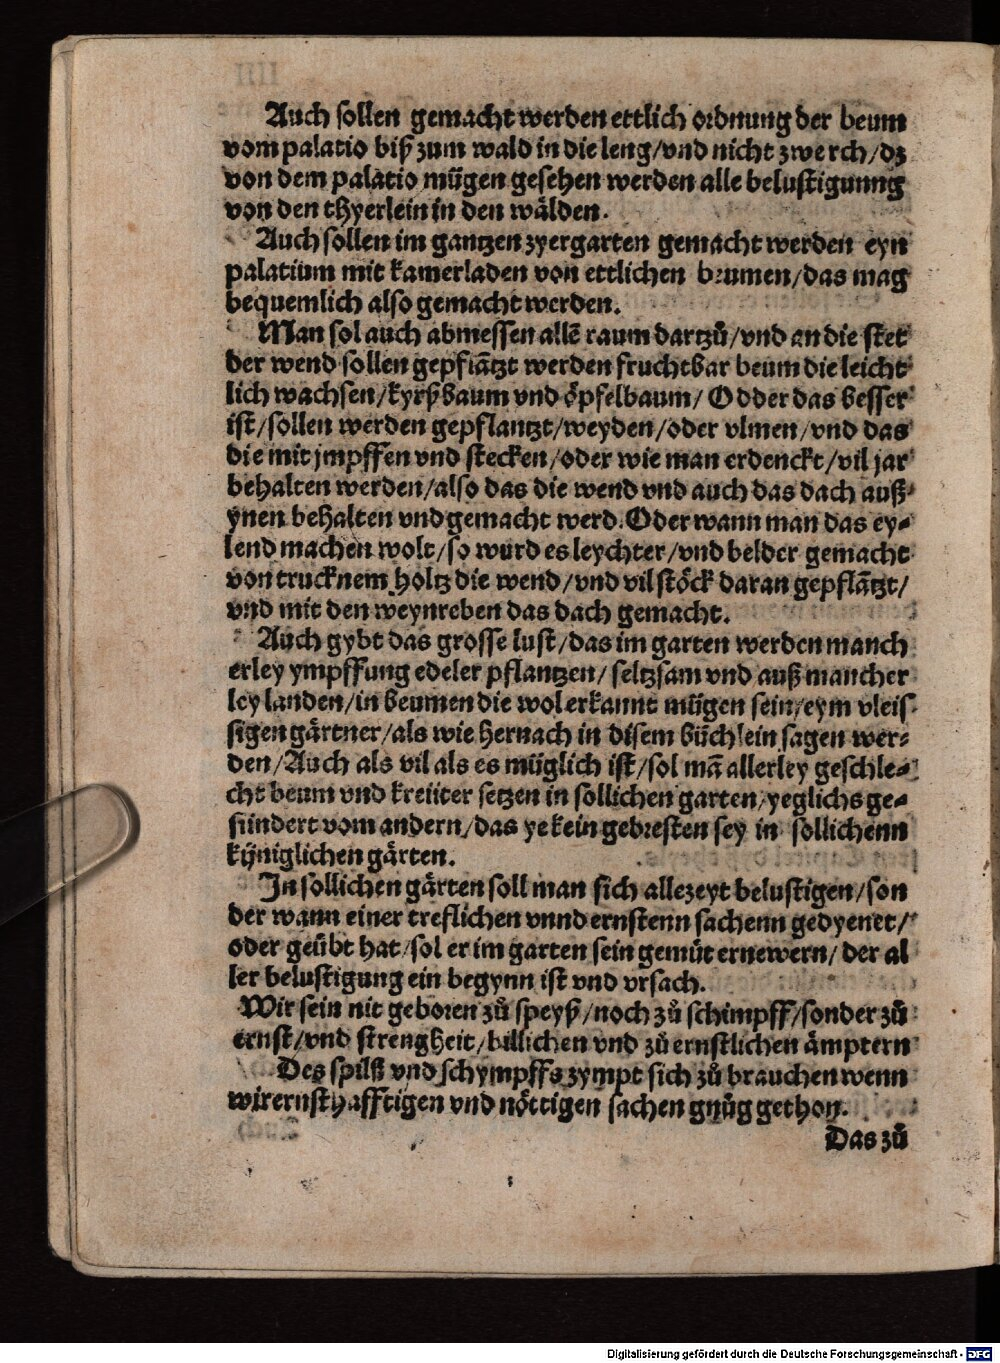 Auch sollen gemacht werden ettlich ordnung der beum
vom palatio biß zum wald in die leng/vnd nicht zwerch/dz
von dem palatio mügen gesehen werden alle belustigunng
von den thyerlein in den wälden.
Auch sollen im gantzen zyergarten gemacht werden eyn
palatium mit kamerladen von ettlichen brumen/das mag
bequemlich also gemacht werden.
Man sol auch abmessen allẽ raum dartzů/vnd an die stet
der wend sollen gepflãtzt werden fruchtbar beum die leicht
lich wachsen/kyrßbaum vnd öpfelbaum/ Odder das besser
ist/sollen werden gepflantzt/weyden/oder vlmen/vnd das
die mit jmpffen vnd stecken/oder wie man erdenckt/vil jar
behalten werden/also das die wend vnd auch das dach auß
ynen behalten vnd gemacht werd. Oder wann man das ey⸗
lend machen wolt/so wurd es leychter/vnd belder gemacht
von trucknem holtz die wend/vnd vil stöck daran gepflãtzt/
vnd mit den weynreben das dach gemacht.
Auch gybt das grosse lust/das im garten werden manch
erley ympffung edeler pflantzen/ seltzsam vnd auß mancher
ley landen/in beumen die wol erkannt mügen sein/eym vleis
sigen gärtner/als wie hernach in disem büchlein sagen wer⸗
den/Auch als vil als es müglich ist/sol mã allerley geschle⸗
cht beum vnd kreüter setzen in sollichen garten/yeglichs ge⸗
sündert vom andern/das ye kein gebresten sey in sollichenn
küniglichen gärten.
In sollichen gärten soll man sich allezeyt belustigen/son
der wann einer treflichen vnnd ernstenn sachenn gedyenet/
oder geübt hat/sol er im garten sein gemüt ernewern/ der al
ler belustigung ein begynn ist vnd vrsach.
Wir sein nit geboren zů speyß/noch zů schimpff/sonder zů
ernst/vnd strengheit/billichen vnd zů ernstlichen ämptern
Des spilß vnd schympffs zympt sich zů brauchen wenn
wir ernsthafftigen vnd nöttigen sachen gnůg gethon.
Das zů
Digitalisierung gefördert durch die Deutsche Forschungsgemeinschaft - DFG